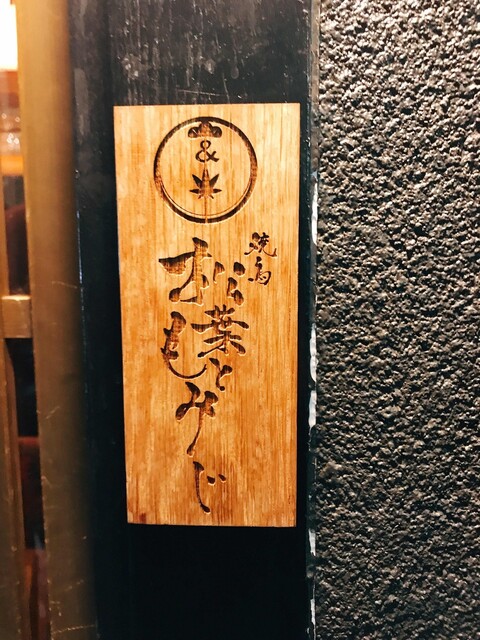 &
焼鳥
松葉と
もみじ